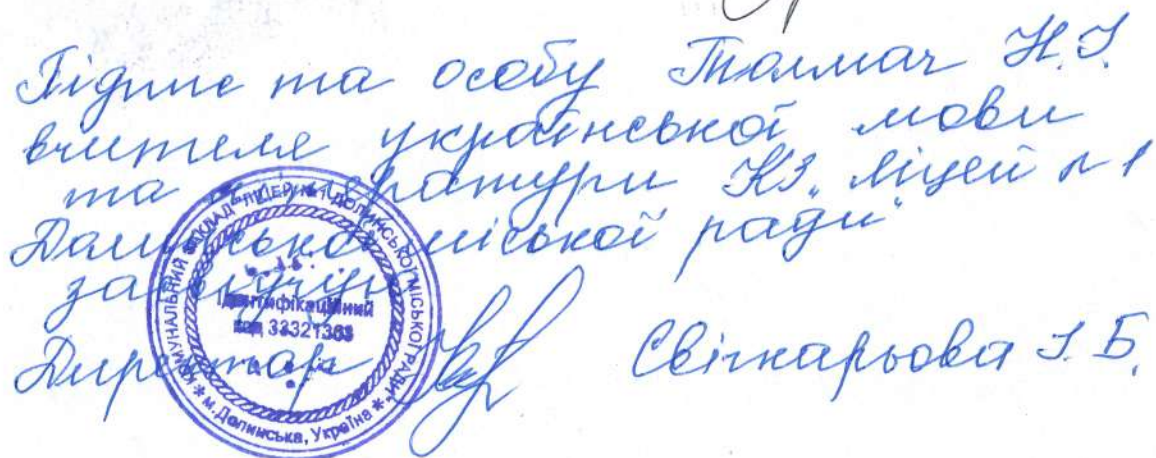 Підпис та особу Толмач Н.І.
вчителя української мови
та літератури КЗ „Ліцей №1
Долинської міської ради"
засвідчую
Директор Свічкарьова І. Б.
КОМУНАЛЬНИЙ ЗАКЛАД "ЛІЦЕЙ №1 ДОЛИНСЬКОЇ МІСЬКОЇ РАДИ"
* м. Долинська, Україна *
Ідентифікаційний
код 33321363